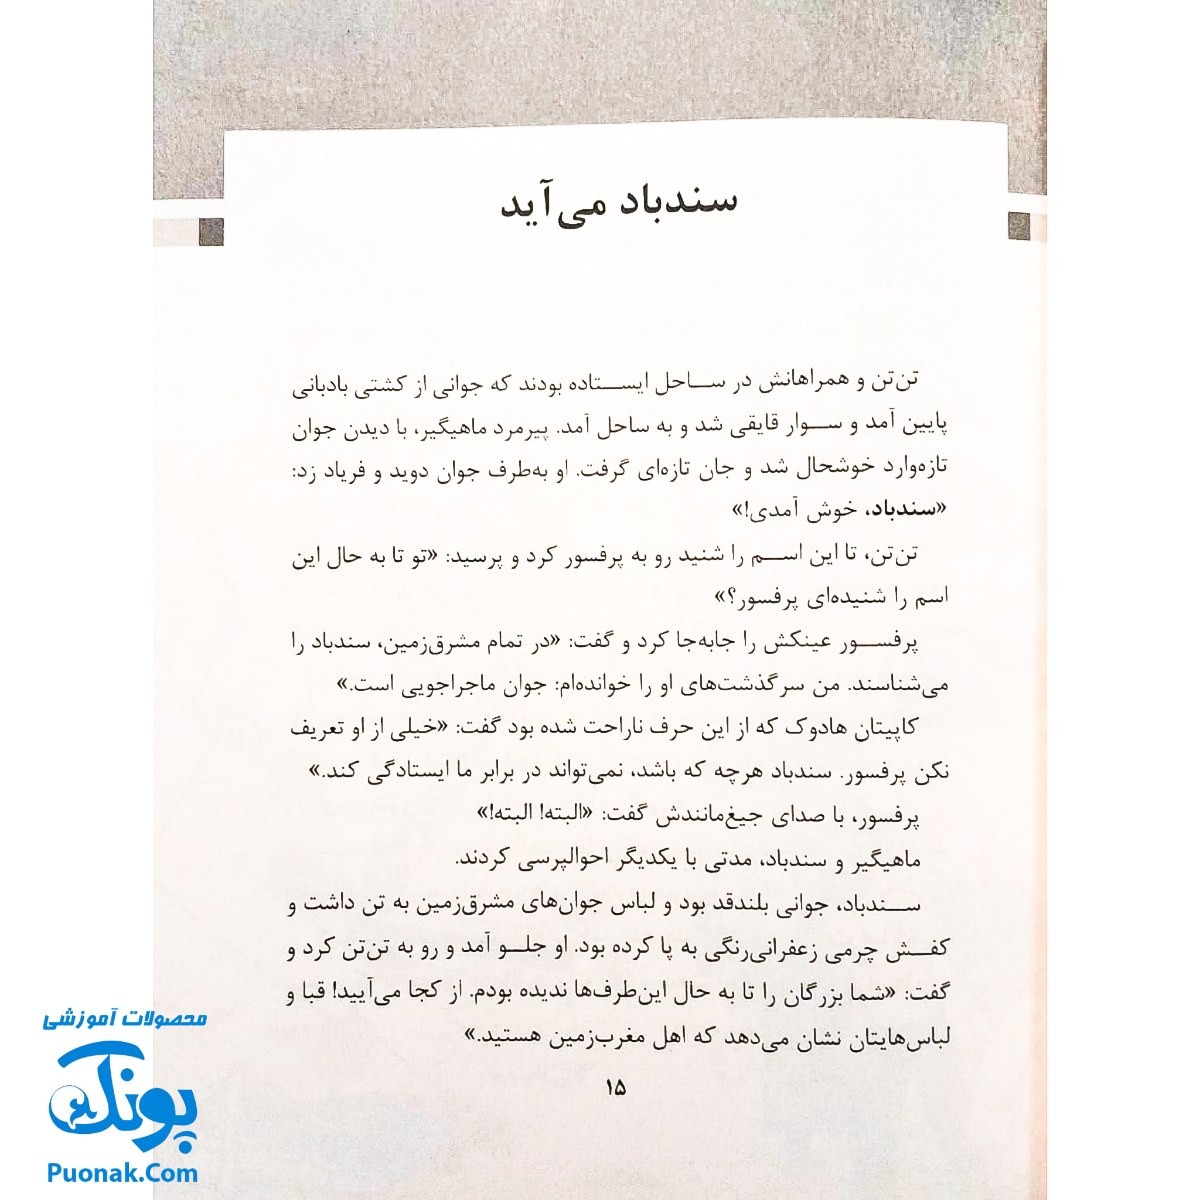 سندباد می‌آید
تن‌تن و همراهانش در ساحل ایستاده بودند که جوانی از کشتی بادبانی
پایین آمد و سوار قایقی شد و به ساحل آمد. پیرمرد ماهیگیر، با دیدن جوان
تازه‌وارد خوشحال شد و جان تازه‌ای گرفت. او به‌طرف جوان دوید و فریاد زد:
«سندباد، خوش آمدی!»
تن‌تن، تا این اسم را شنید رو به پرفسور کرد و پرسید: «تو تا به حال این
اسم را شنیده‌ای پرفسور؟»
پرفسور عینکش را جابه‌جا کرد و گفت: «در تمام مشرق‌زمین، سندباد را
می‌شناسند. من سرگذشت‌های او را خوانده‌ام: جوان ماجراجویی است.»
کاپیتان هادوک که از این حرف ناراحت شده بود گفت: «خیلی از او تعریف
نکن پرفسور. سندباد هرچه که باشد، نمی‌تواند در برابر ما ایستادگی کند.»
پرفسور، با صدای جیغ‌مانندش گفت: «البته! البته!»
ماهیگیر و سندباد، مدتی با یکدیگر احوالپرسی کردند.
سندباد، جوانی بلندقد بود و لباس جوان‌های مشرق‌زمین به تن داشت و
کفش چرمی زعفرانی‌رنگی به پا کرده بود. او جلو آمد و رو به تن‌تن کرد و
گفت: «شما بزرگان را تا به حال این‌طرف‌ها ندیده بودم. از کجا می‌آیید! قبا و
لباس‌هایتان نشان می‌دهد که اهل مغرب‌زمین هستید.»
۱۵
محصولات آموزشی
پونک
Puonak.Com